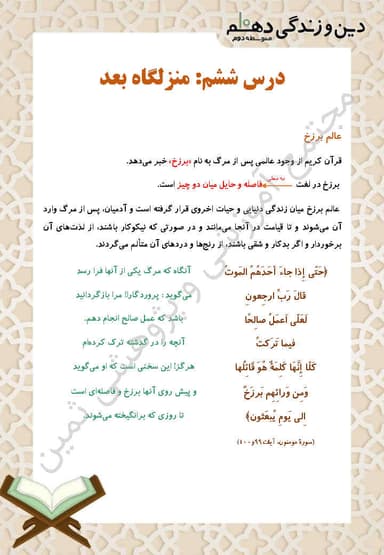 دین و زندگی دهم
متوسطه دوم
درس ششم: منزلگاه بعد
عالم برزخ
قرآن کریم از وجود عالمی پس از مرگ به نام «برزخ» خبر می‌دهد.
برزخ در لغت به معنی فاصله و حایل میان دو چیز است.
عالم برزخ میان زندگی دنیایی و حیات اخروی قرار گرفته است و آدمیان، پس از مرگ وارد
آن می‌شوند و تا قیامت در آنجا می‌مانند و در صورتی که نیکوکار باشند، از لذت‌های آن
برخوردار و اگر بدکار و شقی باشند، از رنج‌ها و دردهای آن متألم می‌گردند.
﴿حَتّی إِذا جاءَ أَحَدَهُمُ المَوتُ آنگاه که مرگ یکی از آنها فرا رسد
قالَ رَبِّ ارجِعونِ می‌گوید: پروردگارا! مرا بازگردانید
لَعَلّی أَعمَلُ صالِحًا باشد که عمل صالح انجام دهم.
فیما تَرَکتُ آنچه را در گذشته ترک کرده‌ام
کَلّا إِنَّها کَلِمَةٌ هُوَ قائِلُها هرگز! این سخنی است که او می‌گوید
وَمِن وَرائِهِم بَرزَخٌ و پیش روی آنها برزخ و فاصله‌ای است
إِلی یَومِ یُبعَثونَ﴾ تا روزی که برانگیخته می‌شوند
(سورهٔ مومنون، آیات ۹۹ و ۱۰۰)
مجتمع آموزشی و پژوهشی ثمین